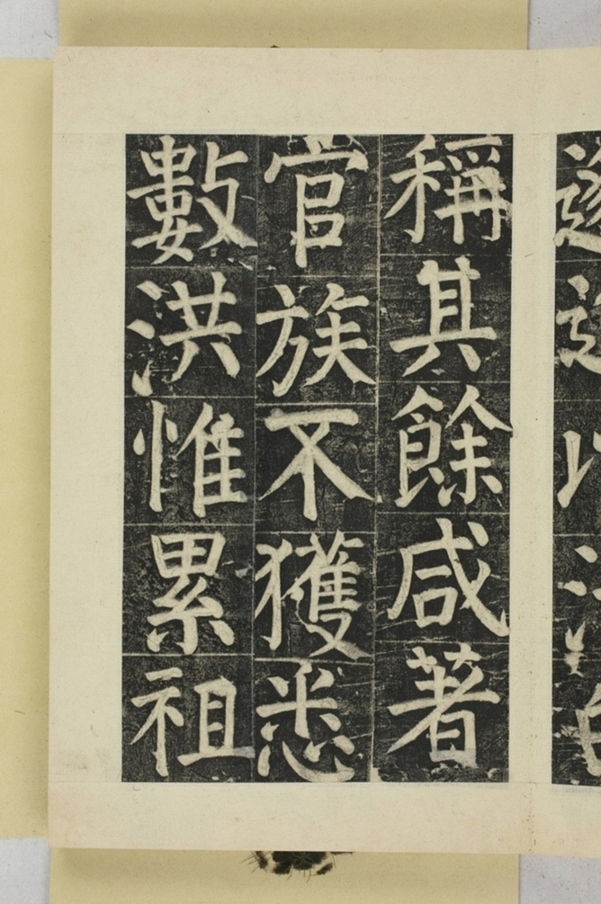 稱其餘咸著
官族不獲悉
數洪惟累祖